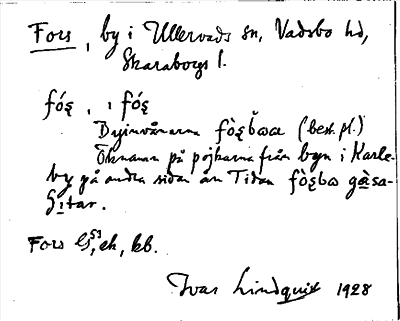 Fors, by i Ullervads sn, Vadsbo hd,
Skaraborgs l.
fóʂ, ı fóʂ
Byinvånarna fòʂbωa (best. pl.)
Öknamn på pojkarna från byn i Karle-
by på andra sidan ån Tidan fòʂbω gàsa-
gıtar.
Fors GS, ek, kb.
Ivar Lindquist 1928